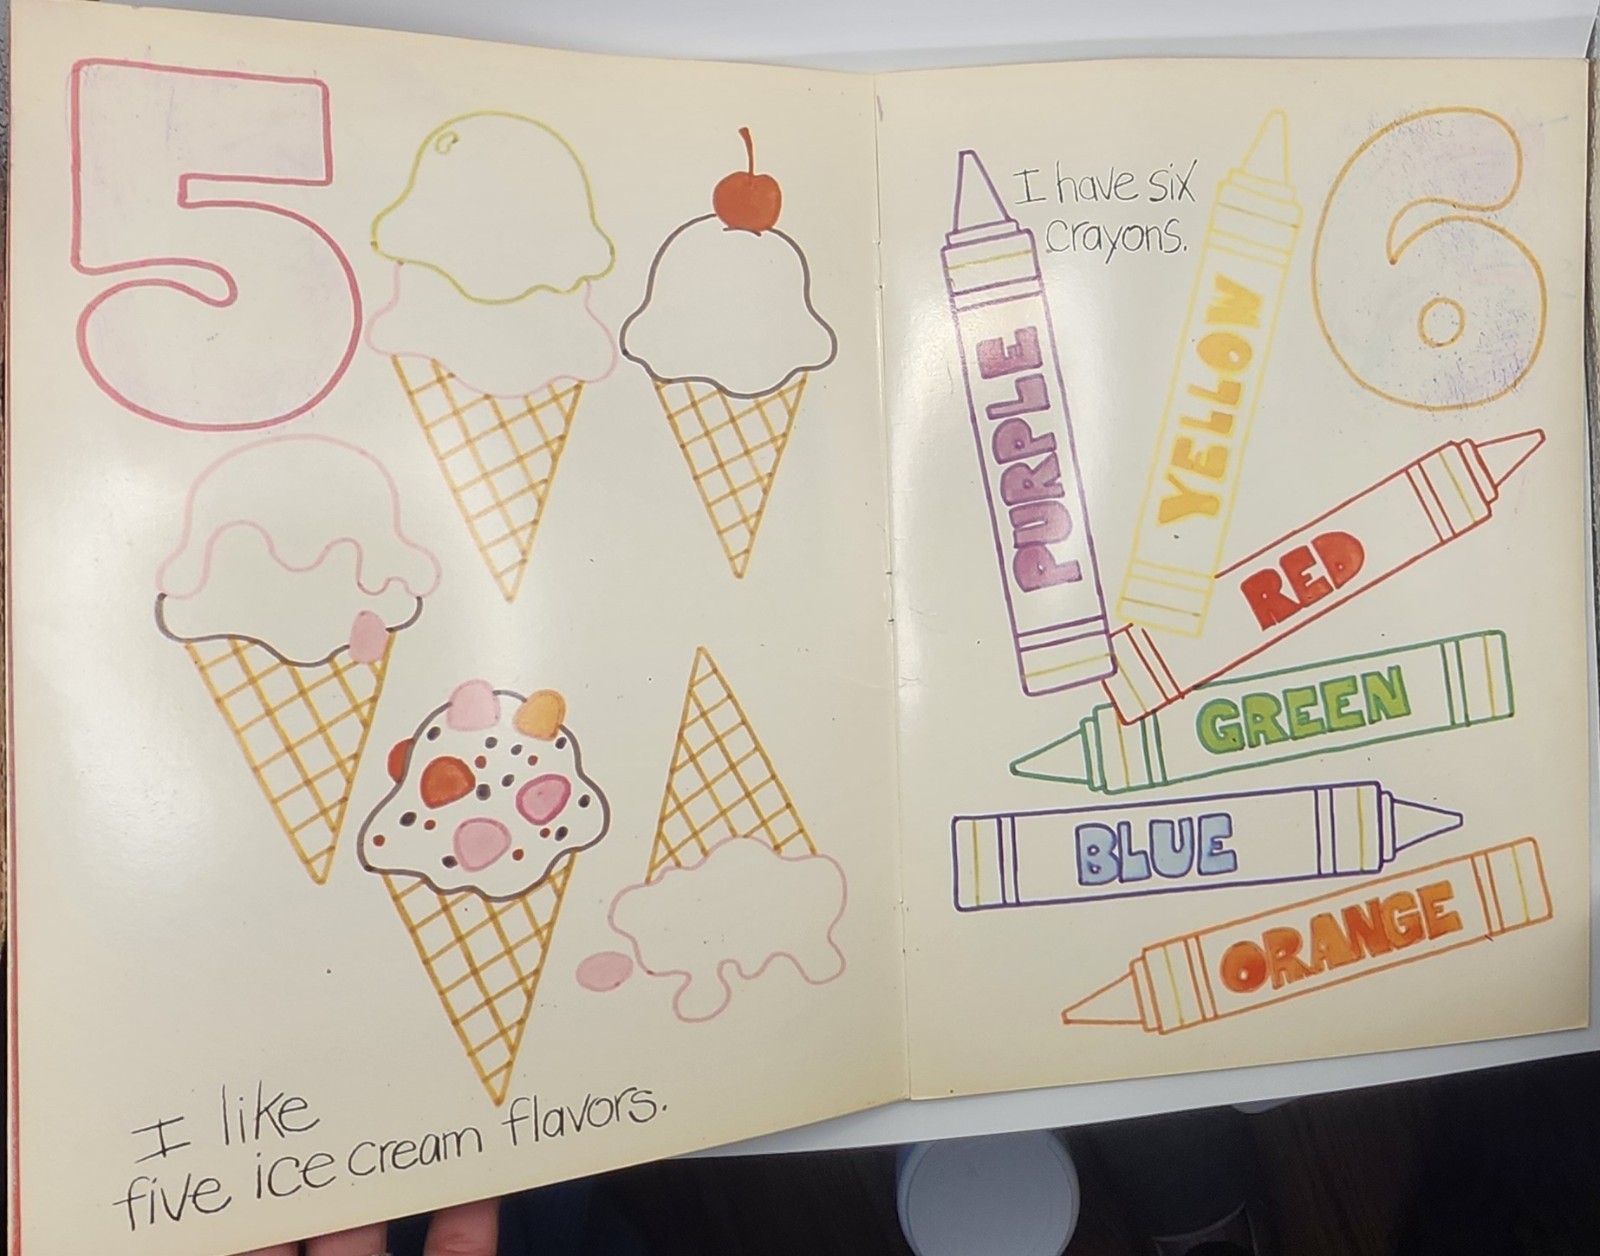 5
I like
five ice cream flavors.
I have six
crayons.
6
PURPLE
YELLOW
RED
GREEN
BLUE
ORANGE